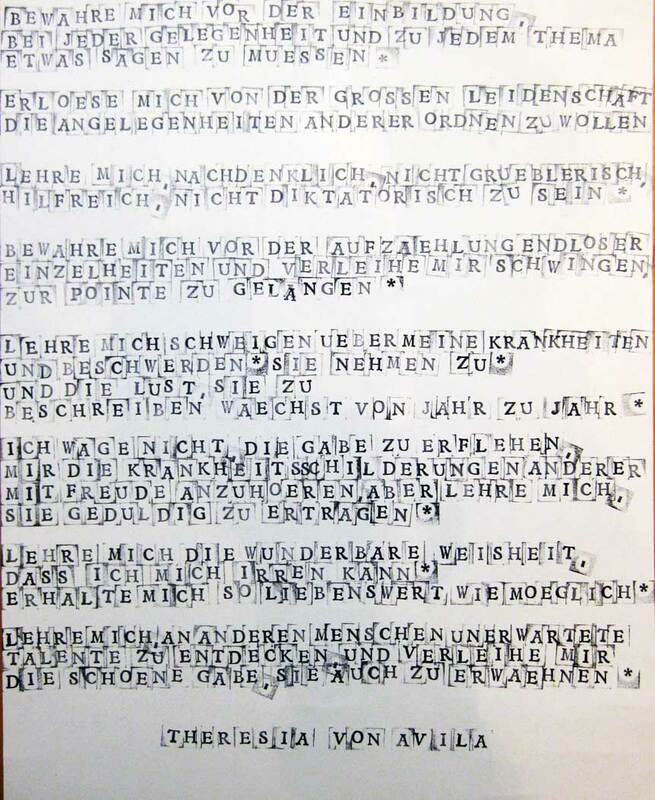 BEWAHRE MICH VOR DER EINBILDUNG,
BEI JEDER GELEGENHEIT UND ZU JEDEM THEMA
ETWAS SAGEN ZU MUESSEN *
ERLOESE MICH VON DER GROSSEN LEIDENSCHAFT
DIE ANGELEGENHEITEN ANDERER ORDNEN ZU WOLLEN
LEHRE MICH, NACHDENKLICH, NICHT GRUEBLERISCH,
HILFREICH, NICHT DIKTATORISCH ZU SEIN *
BEWAHRE MICH VOR DER AUFZAEHLUNG ENDLOSER
EINZELHEITEN UND VERLEIHE MIR SCHWINGEN,
ZUR POINTE ZU GELANGEN *
LEHRE MICH SCHWEIGEN UEBER MEINE KRANKHEITEN
UND BESCHWERDEN * SIE NEHMEN ZU *
UND DIE LUST, SIE ZU
BESCHREIBEN WAECHST VON JAHR ZU JAHR *
ICH WAGE NICHT, DIE GABE ZU ERFLEHEN,
MIR DIE KRANKHEITSSCHILDERUNGEN ANDERER
MIT FREUDE ANZUHOEREN, ABER LEHRE MICH,
SIE GEDULDIG ZU ERTRAGEN *
LEHRE MICH DIE WUNDERBARE WEISHEIT,
DASS ICH MICH IRREN KANN *
ERHALTE MICH SO LIEBENSWERT WIE MOEGLICH *
LEHRE MICH, AN ANDEREN MENSCHEN UNERWARTETE
TALENTE ZU ENTDECKEN, UND VERLEIHE MIR
DIE SCHOENE GABE, SIE AUCH ZU ERWAEHNEN *
THERESIA VON AVILA